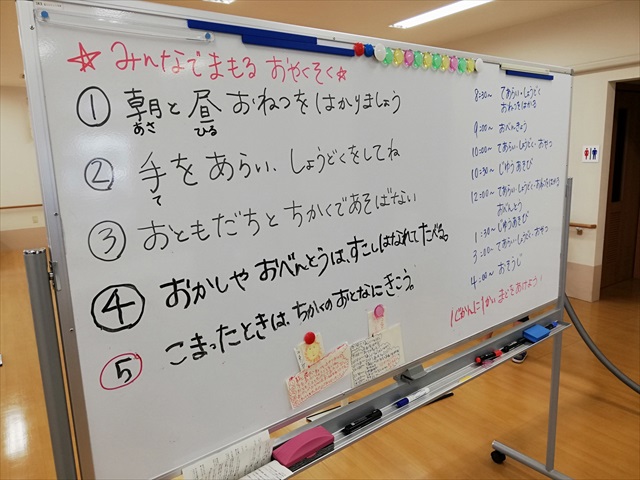 ☆みんなでまもる おやくそく☆
① 朝と 昼 おねつを はかりましょう
あさ ひる
② 手を あらい、しょうどくをしてね
て
③ おともだちと ちかくであそばない
④ おかしや おべんとうは、すこしはなれて たべる。
⑤ こまったときは、ちかくの おとなに きこう。
8:30〜 てあらい・しょうどく
おねつをはかる
9:00〜 おべんきょう
10:00〜 てあらい・しょうどく・おやつ
10:30〜 じゆうあそび
12:00〜 てあらい・しょうどく・おねつをはかる
おべんとう
1:30〜 じゆうあそび
3:00〜 てあらい・しょうどく・おやつ
4:00〜 おそうじ
1じかんに1かい まどをあけよう!